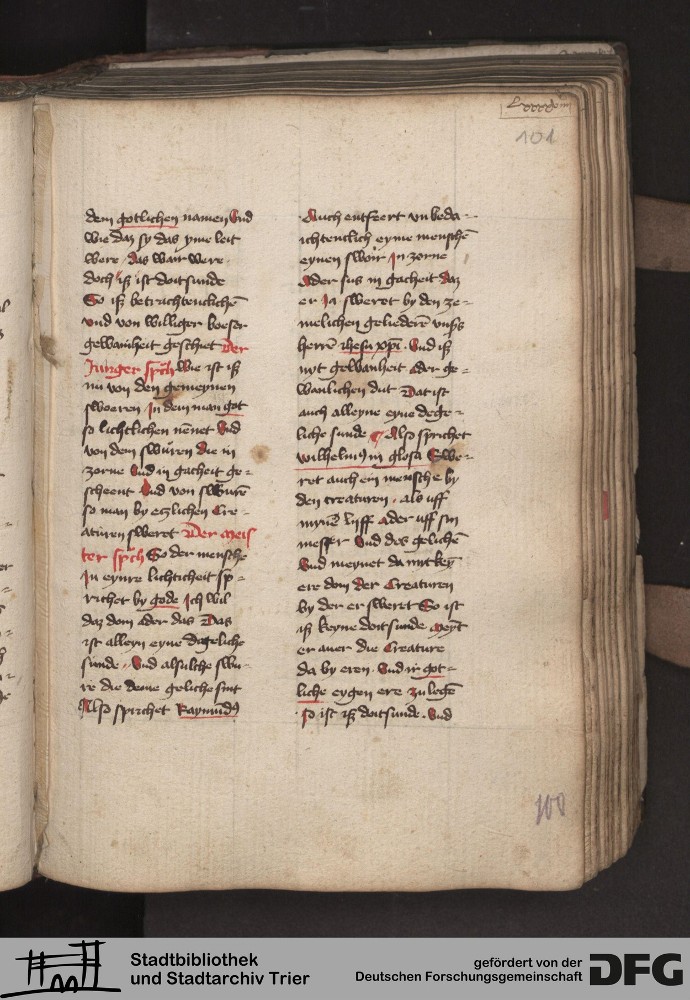 101
dem gotlichen namen Vnd
wie daz sy das yme leit
were . das wair were .
doch iß ist doitsunde
So iß betrachtenclichē
vnd von williger boeser
gewanheit geschiet Der
Junger sp̄ch wie ist iß
nu von den gemeynen
swoeren In dem man got
so lichtlichen nēnet Vnd
von dem swuren die in
zorne Vnd in gacheit ge-
scheent Vnd von swurē
so man by etzlichen Cre-
aturen sweret Der meis
ter sp̄ch So der mensche
In eynre lichticheit sp-
richet by gode Ich wil
daz doin ader das Das
ist alleyn eyne dageliche
sunde . Vnd alsulche swu-
re die deme geliche sint
Also sprichet Raymundꝰ
Auch entfeert vnbeda-
ichtenclich eyme menschē
eynen swoir In zorne
Ader sus in gacheit daz
er Ia sweret by den ze-
melichen geliederē vnsꝰs
herrē ihesu xpi . Vnd iß
nyt gewanheit ader ge-
wanlichen dut Dat ist
auch alleyne eyne dege-
liche sunde Also sprichet
wilhelmꝰ in glosa Swe-
ret auch ein mensche by
den creaturen . als uff
mynē lyff ader uff sin
messer Vnd des gelichē
Vnd meynet da mit keȳ
ere doin der Creaturen
by der er sweret So ist
iß keyne doitsunde . Meȳt
er auer die Creature
da by eren . Vnd ir got-
liche eygen ere zu legē
so ist iß doitsunde . Vnd
100
Stadtbibliothek
und Stadtarchiv Trier
gefördert von der
Deutschen Forschungsgemeinschaft
DFG